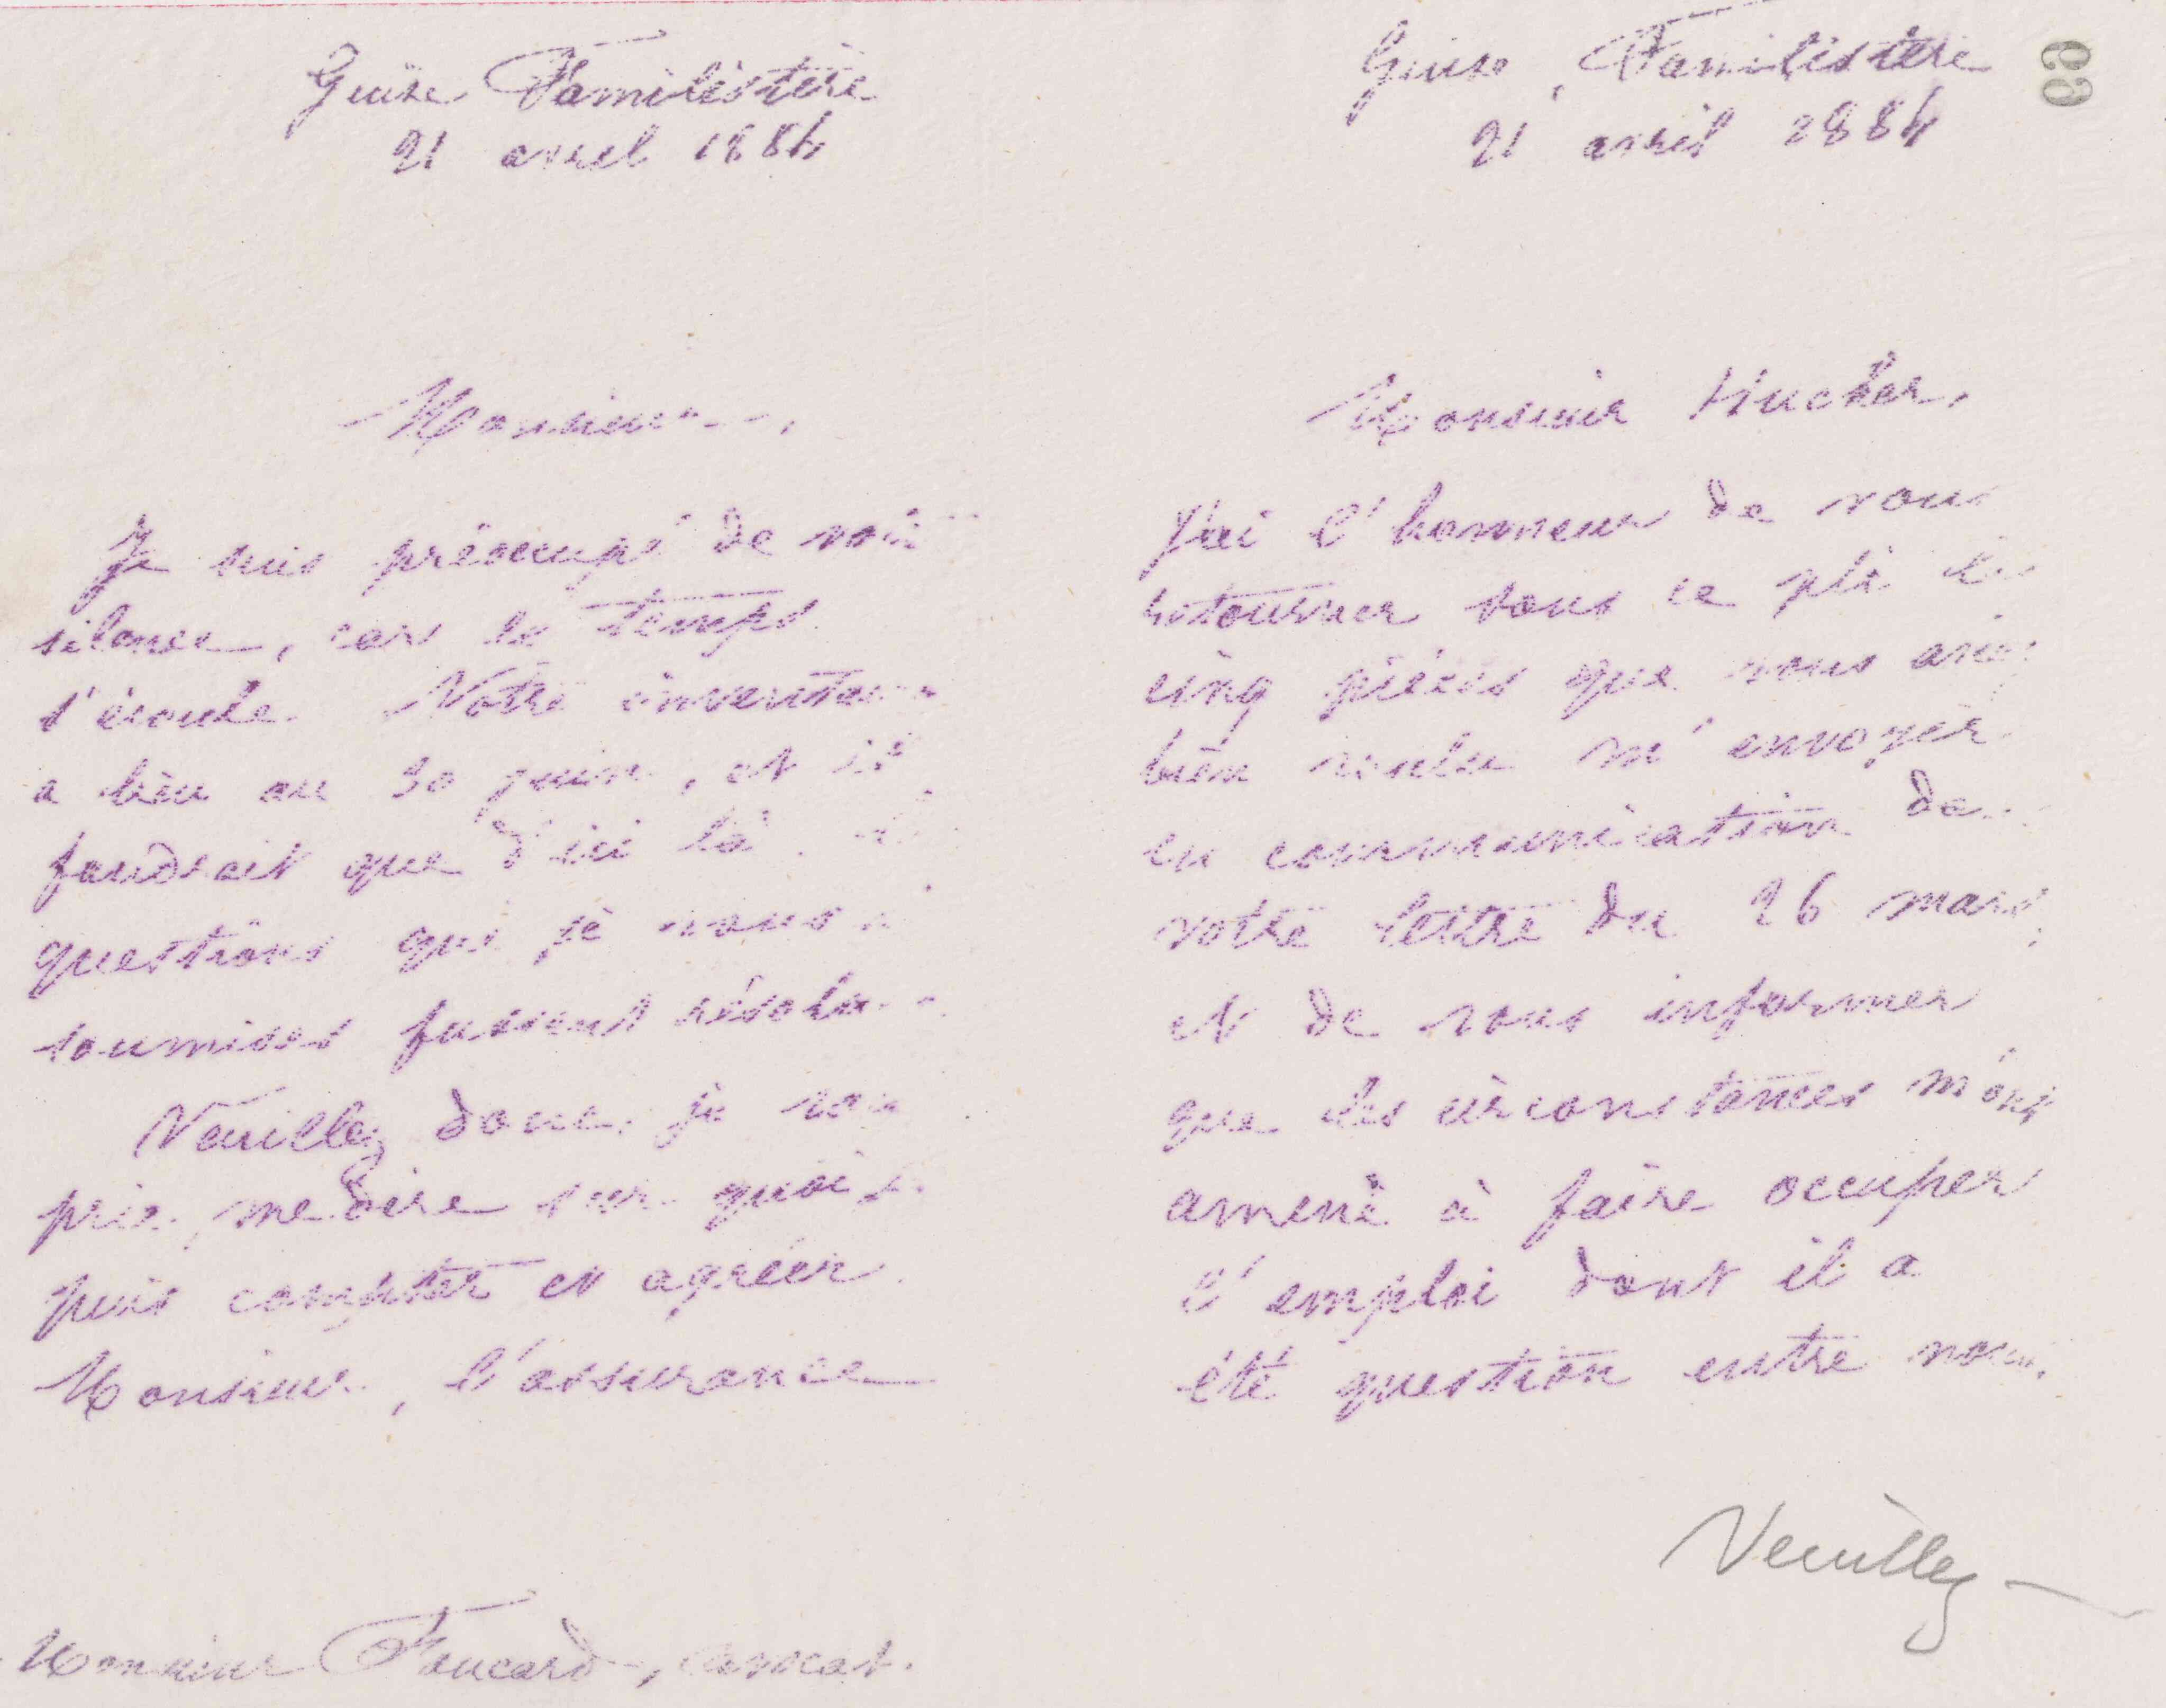 Guise Familistère
21 avril 1884
Monsieur,
Je suis préoccupé de votre
silence, car le temps
s'écoule. Notre inventaire
a lieu au 30 juin, et il
faudrait que d'ici là
questions que je vous
soumises fussent résolues
Veuillez donc, je vous
prie, me dire sur quoi je
puis compter et agréer
Monsieur, l'assurance
Monsieur Foucard, avocat.
69
Guise, Familistère
21 avril 1884
Monsieur Hucher,
J'ai l'honneur de vous
retourner sous ce pli les
cinq pièces que vous aviez
bien voulu m'envoyer
en communication de
votre lettre du 26 mars,
et de vous informer
que des circonstances m'ont
amené à faire occuper
l'emploi dont il a
été question entre nous.
Veuillez